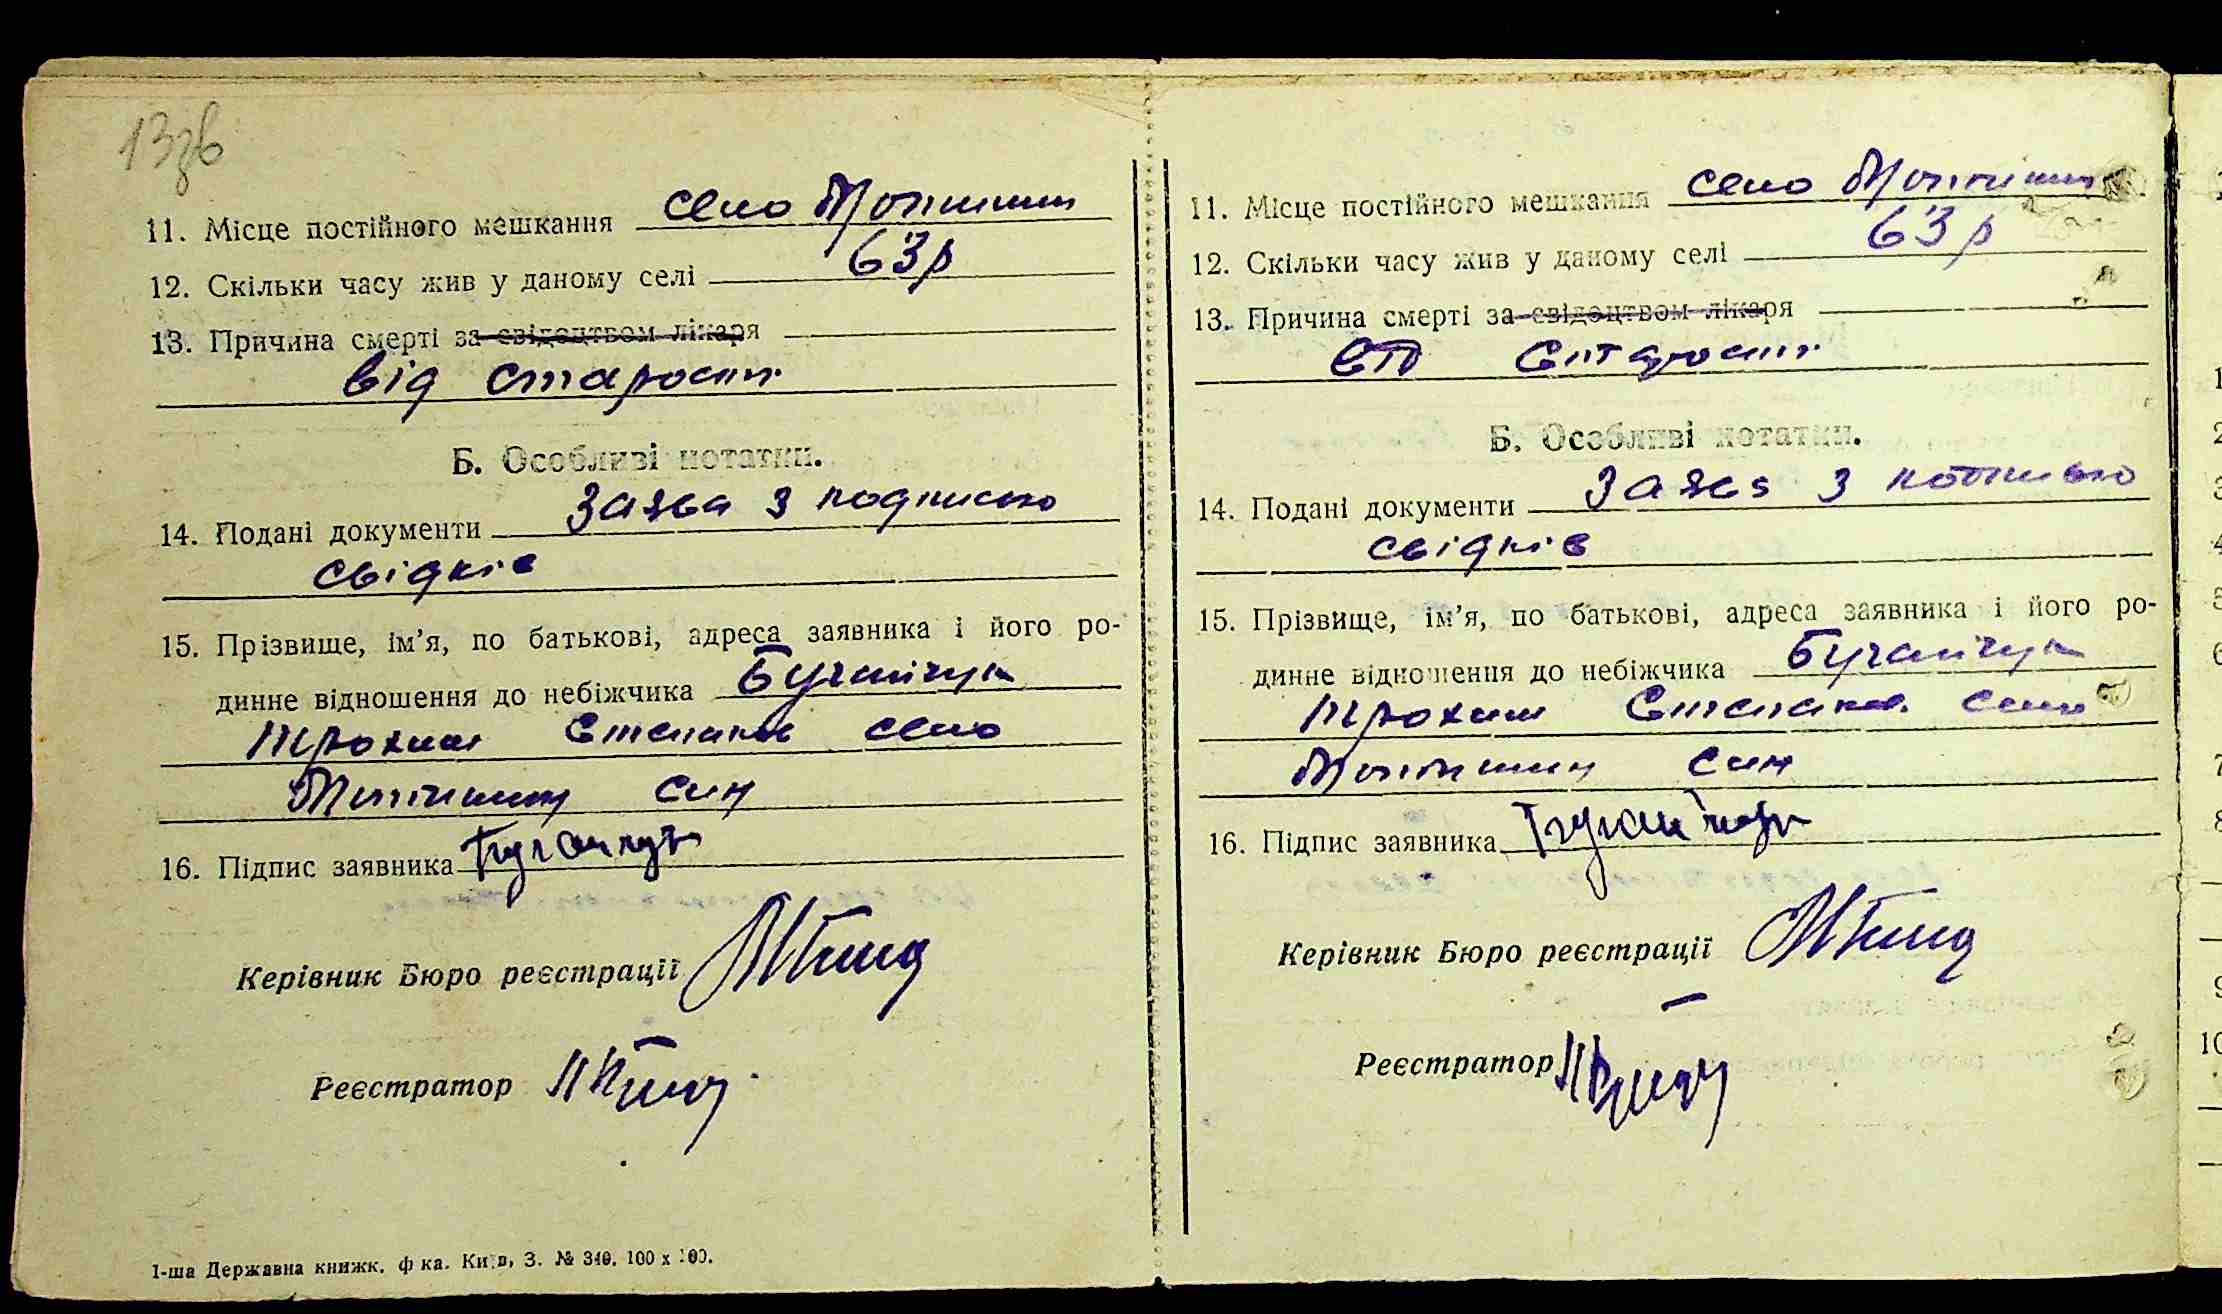 13зв
11. Місце постійного мешкання село Мотижин
12. Скільки часу жив у даному селі 63 р
13. Причина смерті за свідоцтвом лікаря
від старости
Б. Особливі нотатки.
14. Подані документи заява з подписью
свідків
15. Прізвище, ім'я, по батькові, адреса заявника і його ро-
динне відношення до небіжчика
Трохим Степанов село
Мотижин син
16. Підпис заявника
Керівник Бюро реєстрації
Реєстратор
1-ша Державна книжк. ф ка. Київ, З. № 340. 100 x 100.
11. Місце постійного мешкання село Мотижин
12. Скільки часу жив у даному селі 63 р
13. Причина смерті за свідоцтвом лікаря
старости
Б. Особливі нотатки.
14. Подані документи заява з
свідків
15. Прізвище, ім'я, по батькові, адреса заявника і його ро-
динне відношення до небіжчика
Трохим Степанов село
Мотижин син
16. Підпис заявника
Керівник Бюро реєстрації
Реєстратор